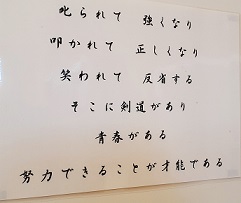 叱られて 強くなり
叩かれて 正しくなり
笑われて 反省する
そこに剣道があり
青春がある
努力できることが才能である